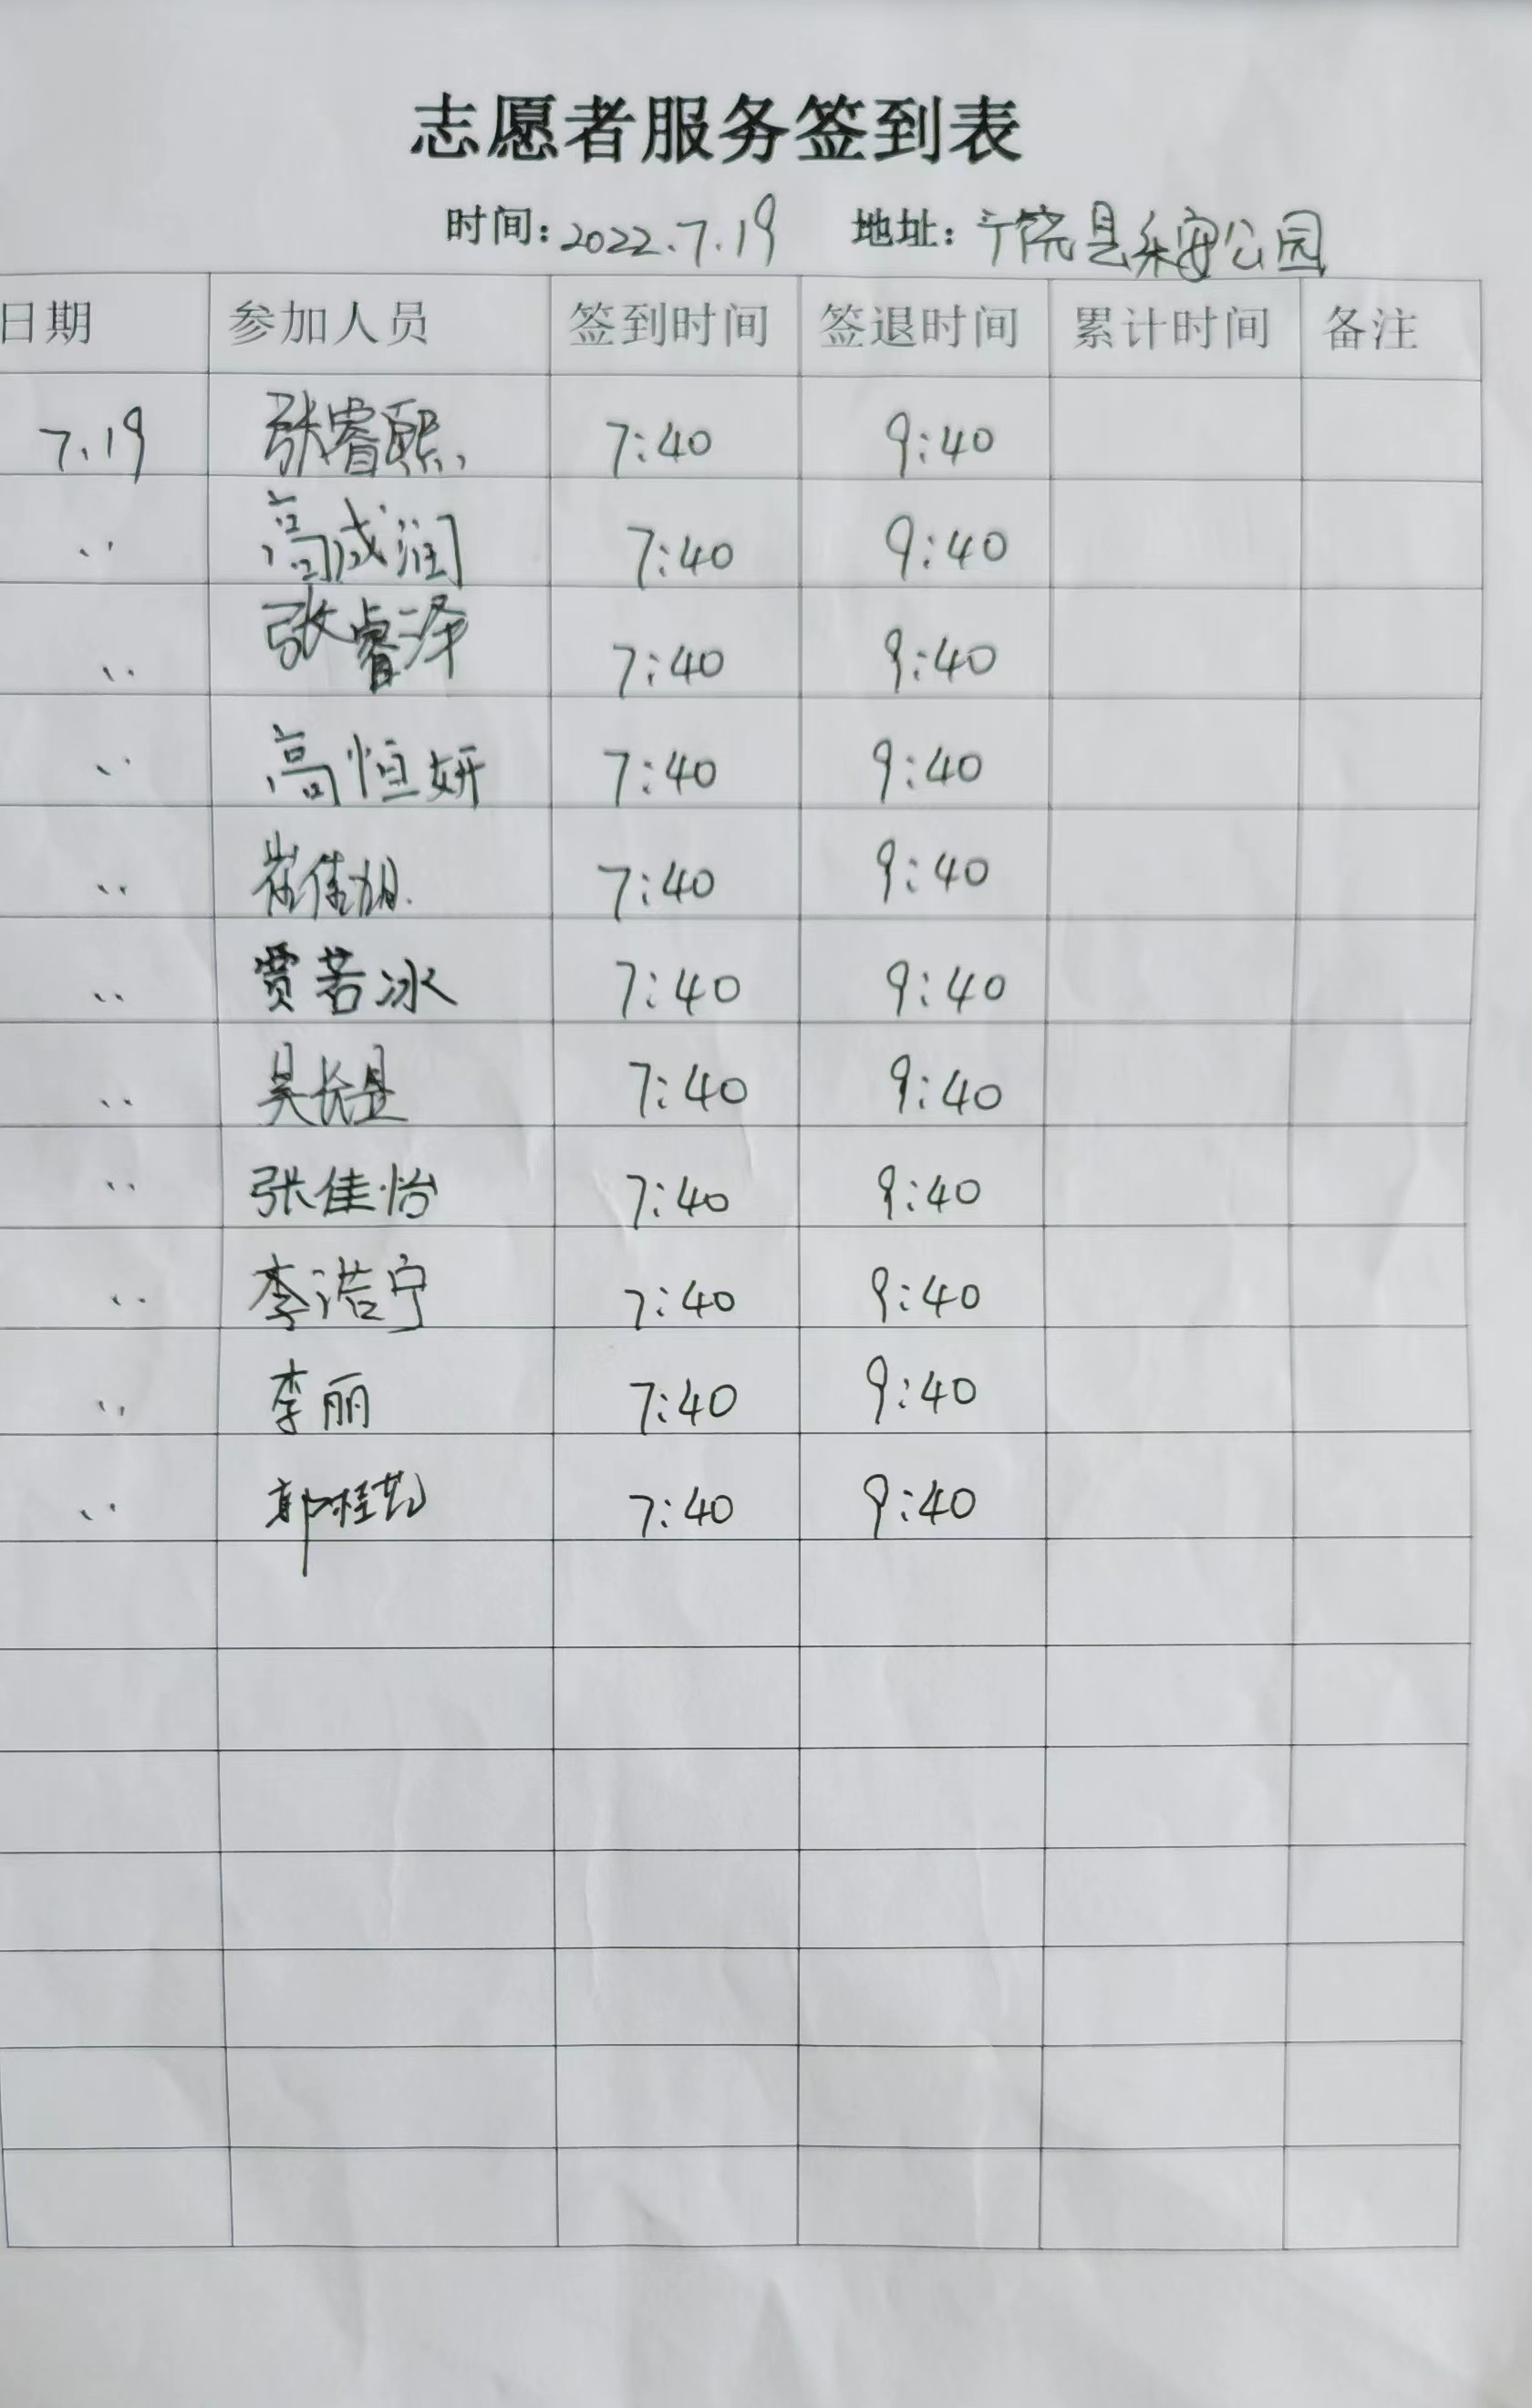 志愿者服务签到表
时间: 2022.7.19 地址: 广饶县乐安公园
日期 参加人员 签到时间 签退时间 累计时间 备注
7.19 张睿熙 7:40 9:40
〃 高成润 7:40 9:40
〃 张睿泽 7:40 9:40
〃 高恒妍 7:40 9:40
〃 崔佳 7:40 9:40
〃 贾若冰 7:40 9:40
〃 吴长 7:40 9:40
〃 张佳怡 7:40 9:40
〃 李浩宁 7:40 9:40
〃 李丽 7:40 9:40
〃 郭桂 7:40 9:40